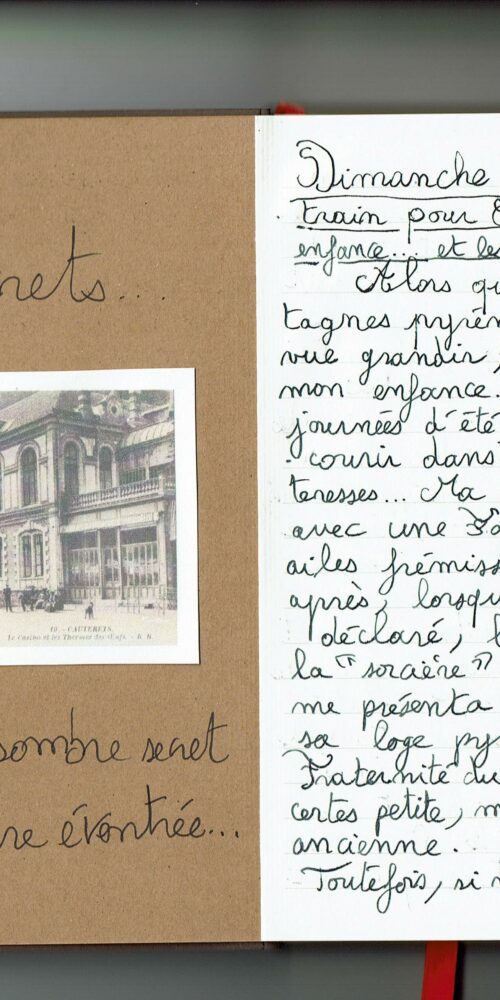 nets....
19. - CAUTERETS.
Le Casino et les Thermes des Œufs. - B. R.
sombre secret
re éventrée...
Dimanche
train pour E
enfance.... et les
Alors qu
tagnes pyrén
vue grandir,
mon enfance.
journées d'été
courir dans
teresses... Ma
avec une Fa
ailes frémiss
après, lorsqu
déclaré, l
la "sorcière"
me présenta
sa loge py
Fraternité du
certes petite, m
ancienne.
Toutefois, si